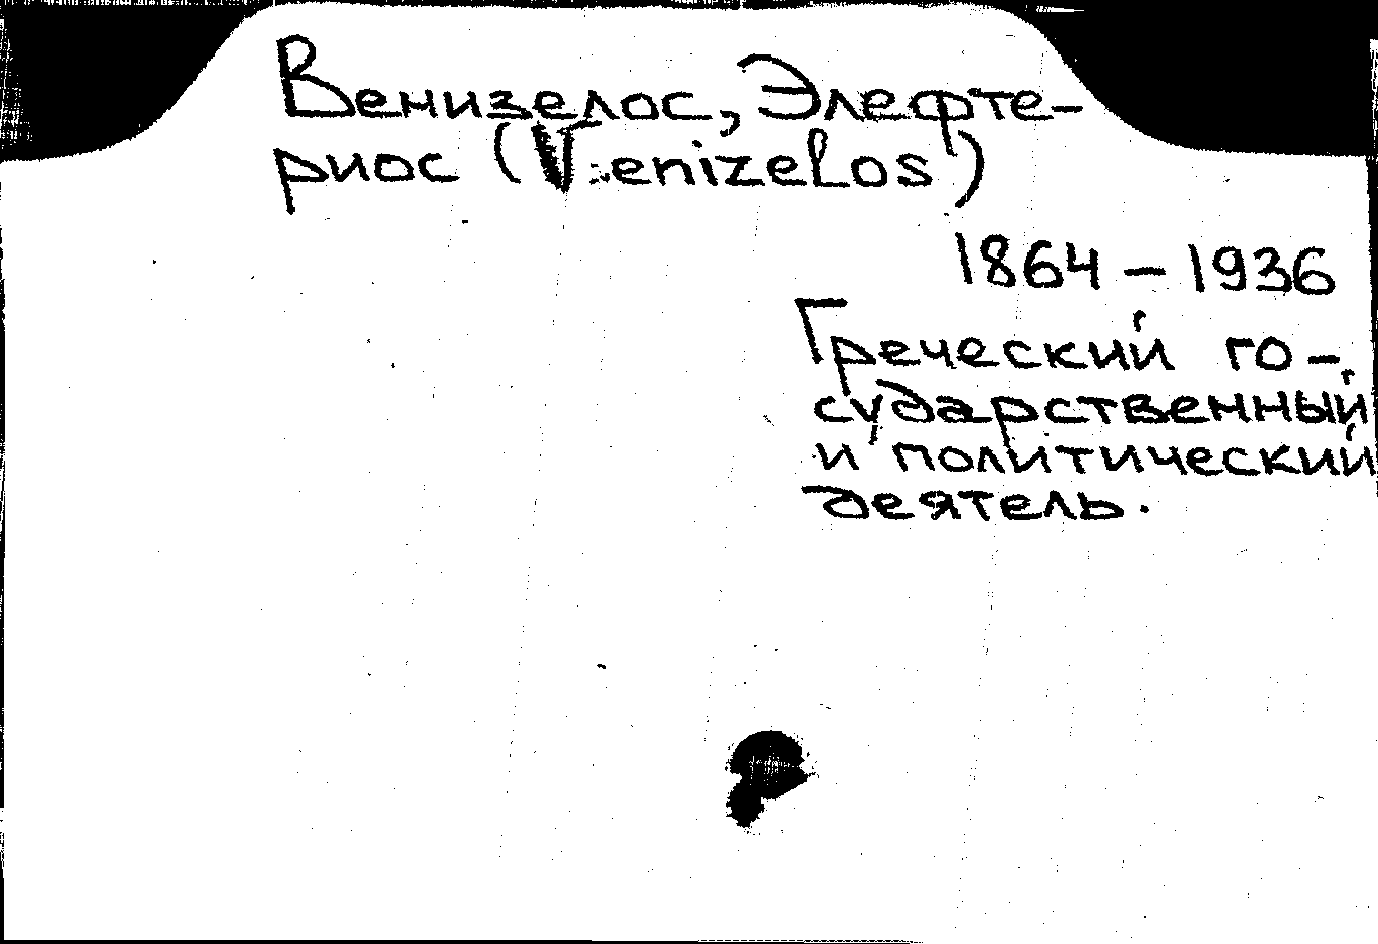 Венизелос, Элефте-
риос (Venizelos)
1864 – 1936
Греческий го-
сударственный
и политический
деятель.